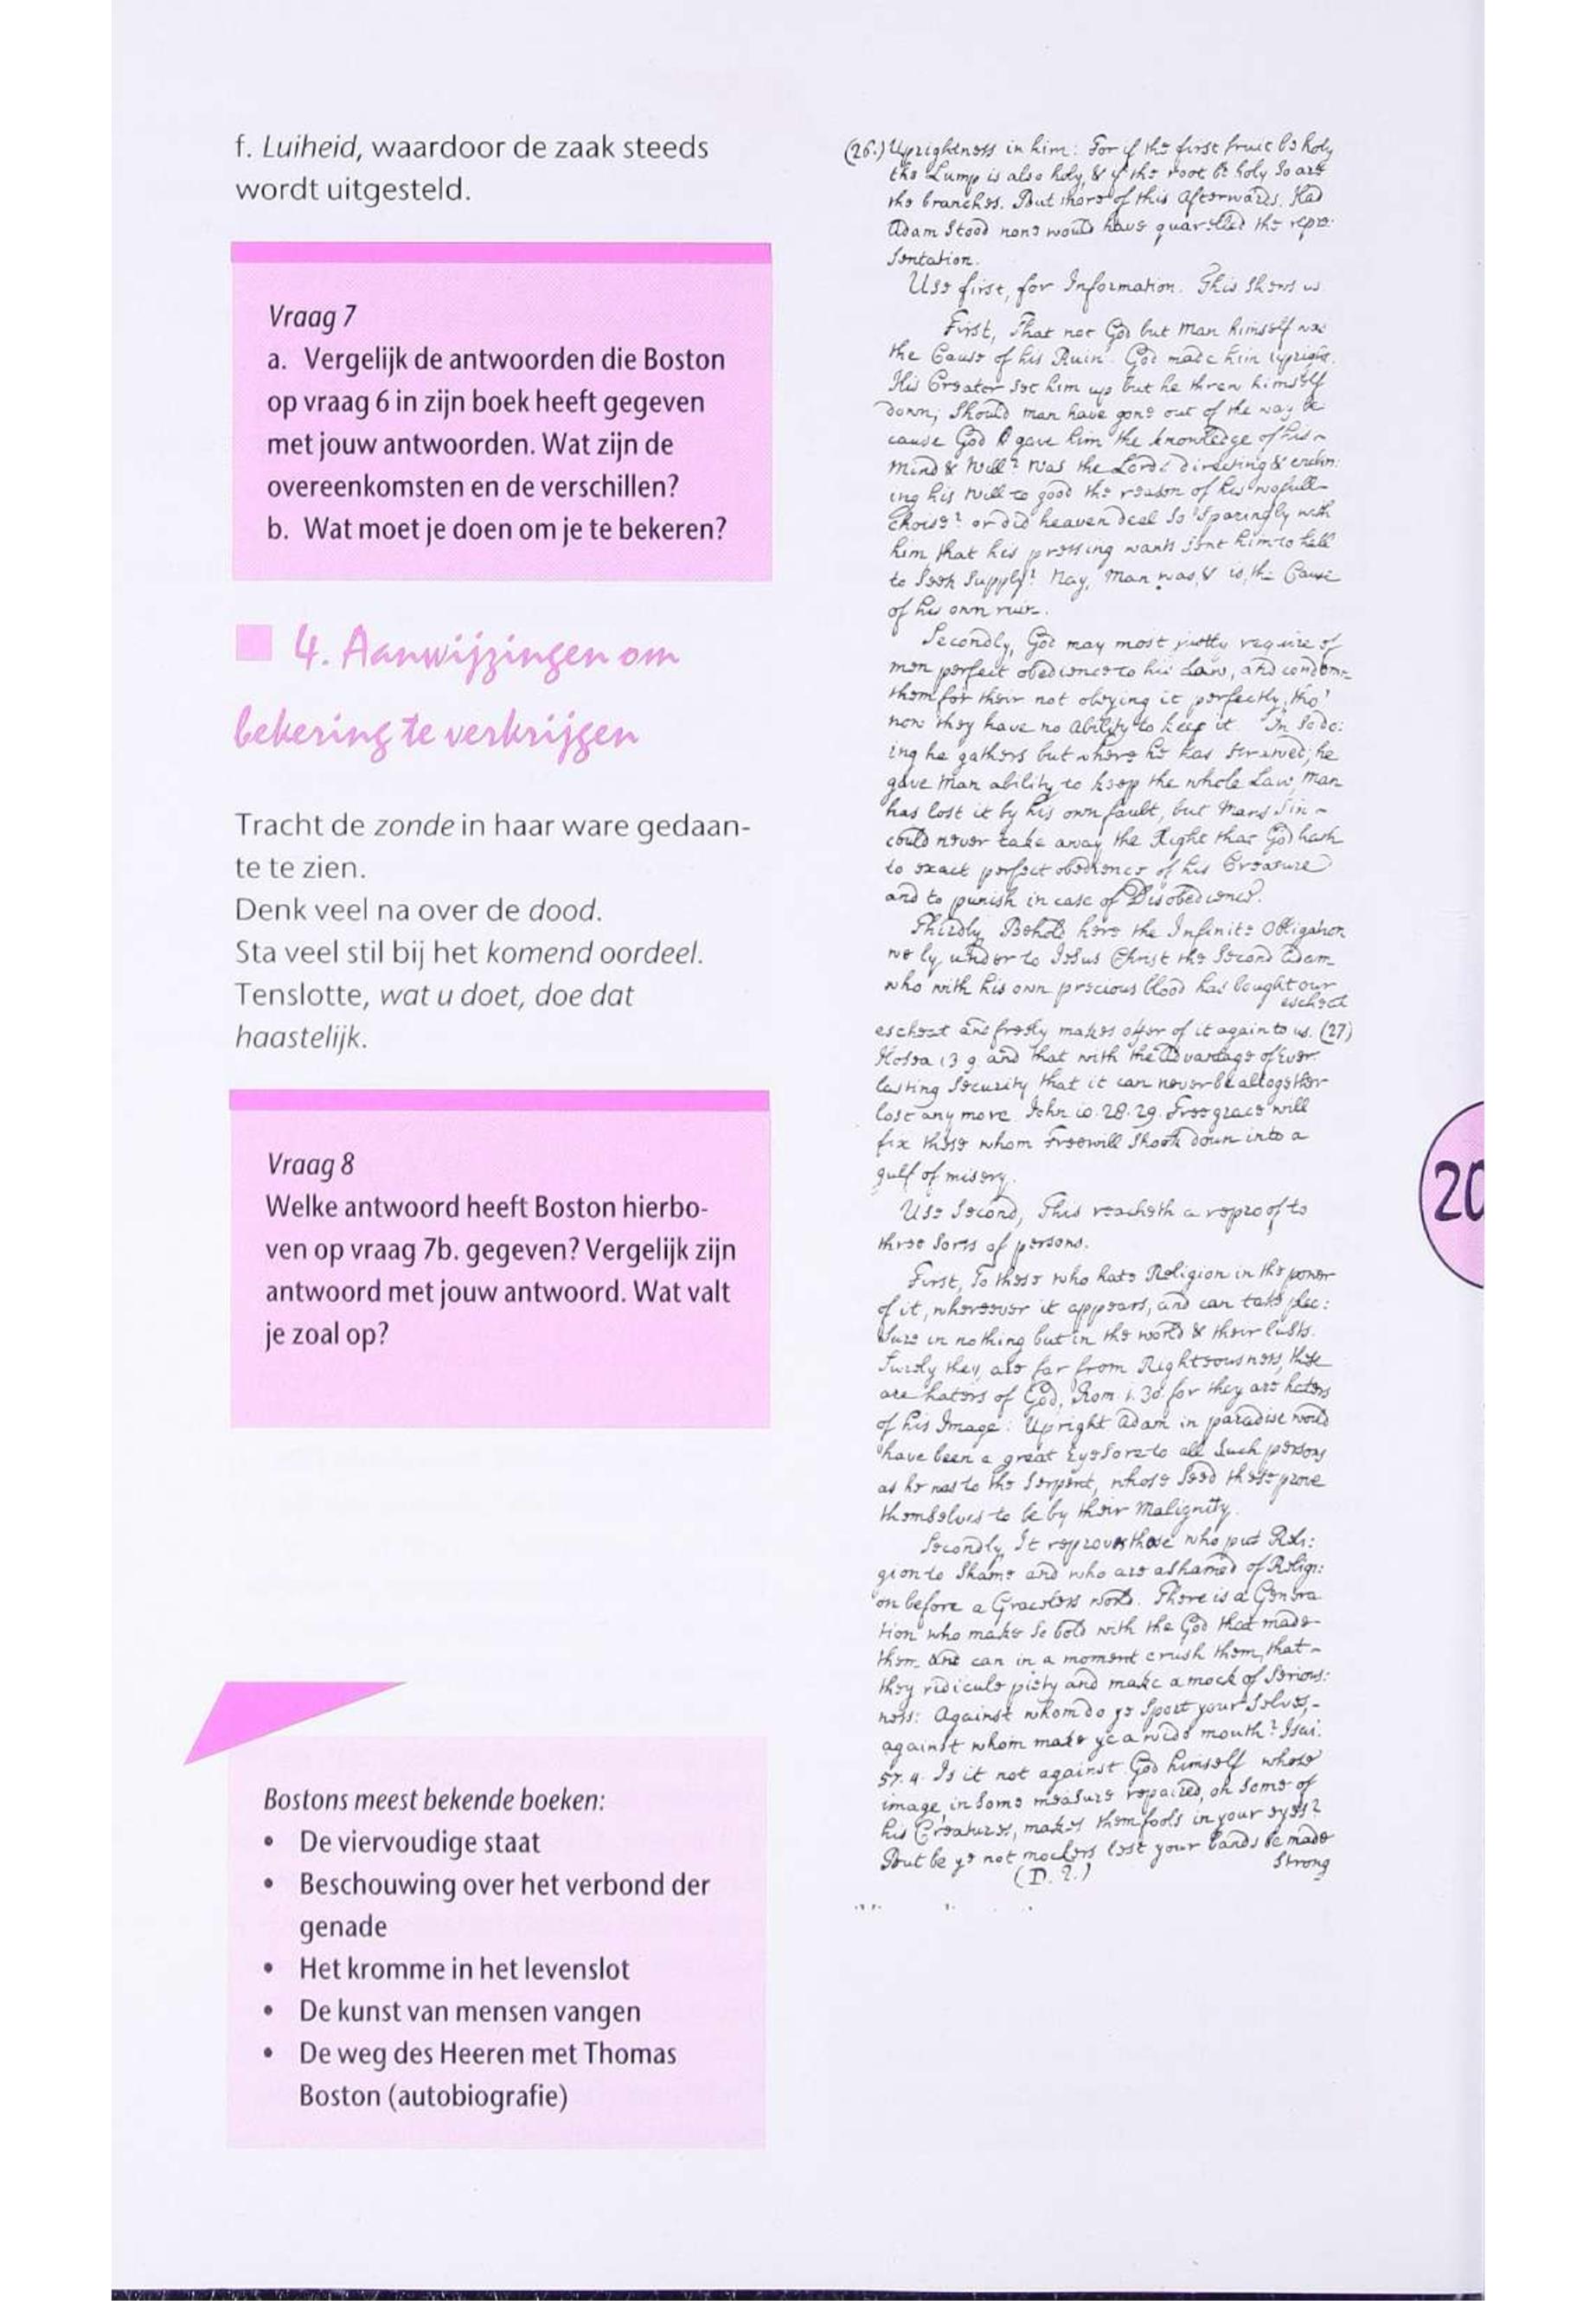 f. Luiheid, waardoor de zaak steeds
wordt uitgesteld.
Vraag 7
a. Vergelijk de antwoorden die Boston
op vraag 6 in zijn boek heeft gegeven
met jouw antwoorden. Wat zijn de
overeenkomsten en de verschillen?
b. Wat moet je doen om je te bekeren?
4. Aanwijzingen om
bekering te verkrijgen
Tracht de zonde in haar ware gedaan-
te te zien.
Denk veel na over de dood.
Sta veel stil bij het komend oordeel.
Tenslotte, wat u doet, doe dat
haastelijk.
Vraag 8
Welke antwoord heeft Boston hierbo-
ven op vraag 7b. gegeven? Vergelijk zijn
antwoord met jouw antwoord. Wat valt
je zoal op?
Bostons meest bekende boeken:
• De viervoudige staat
• Beschouwing over het verbond der
genade
• Het kromme in het levenslot
• De kunst van mensen vangen
• De weg des Heeren met Thomas
Boston (autobiografie)
(26.) Uprightness in him: For if the first fruit be holy
the Lump is also holy, & if the root be holy so are
the branches. But more of this afterwards. Had
Adam stood none would have quarelled the repre:
sentation.
Use first, for Information. This shews us
First, That not God but man himself was
the Cause of his Ruin. God made him upright.
His Creator set him up but he threw himself
down; Should man have gone out of the way be
cause God gave him the knowledge of his
mind & will? was the Lords directing & enclin:
ing his will to good the reason of his wofull
choise? or did heaven deal so sparingly with
him that his pressing wants sent him to hell
to seek supply? Nay, man was, & is, the Cause
of his own ruin.
Secondly, God may most justly require of
men perfect obedience to his Law, and condemn
them for their not obeying it perfectly, tho'
now they have no ability to keep it. In so do:
ing he gathers but where he has strawed; he
gave man ability to keep the whole Law, man
has lost it by his own fault, but mans sin
could never take away the Right that God hath
to exact perfect obedience of his Creature
and to punish in case of Disobedience.
Thirdly, Behold here the Infinite Obligation
we ly under to Jesus Christ the Second Adam
who with his own precious blood has bought our
escheat
escheat and freely makes offer of it again to us. (27)
Hosea 13 9. and that with the advantage of Ever
lasting Security that it can never be altogether
lost any more. John 10. 28. 29. Free grace will
fix those whom Freewill shook down into a
gulf of misery.
Use Second, This reacheth a reproof to
three sorts of persons.
First, To those who hate Religion in the power
of it, wheresoever it appears, and can take plea:
sure in nothing but in the world & their lusts.
Surely they, are far from Righteousness, these
are haters of God, Rom 1. 30. for they are haters
of his Image: Upright Adam in paradise would
have been a great Eyesore to all such persons
as he was to the Serpent, whose seed these prove
themselves to be by their Malignity.
Secondly, It reproves those who put Reli:
gion to shame and who are ashamed of Religi:
on before a Graceless world. There is a Genera
tion who make so bold with the God that made
them and can in a moment crush them, that
they ridicule piety and make a mock of serious:
ness: Against whom do ye sport your selves,
against whom make ye a wide mouth? Isai.
57. 4. Is it not against God himself whose
image, in some measure repaired, on some of
his Creatures, makes them fools in your eyes?
But be ye not mockers lest your bands be made
(D. 2.) strong
20